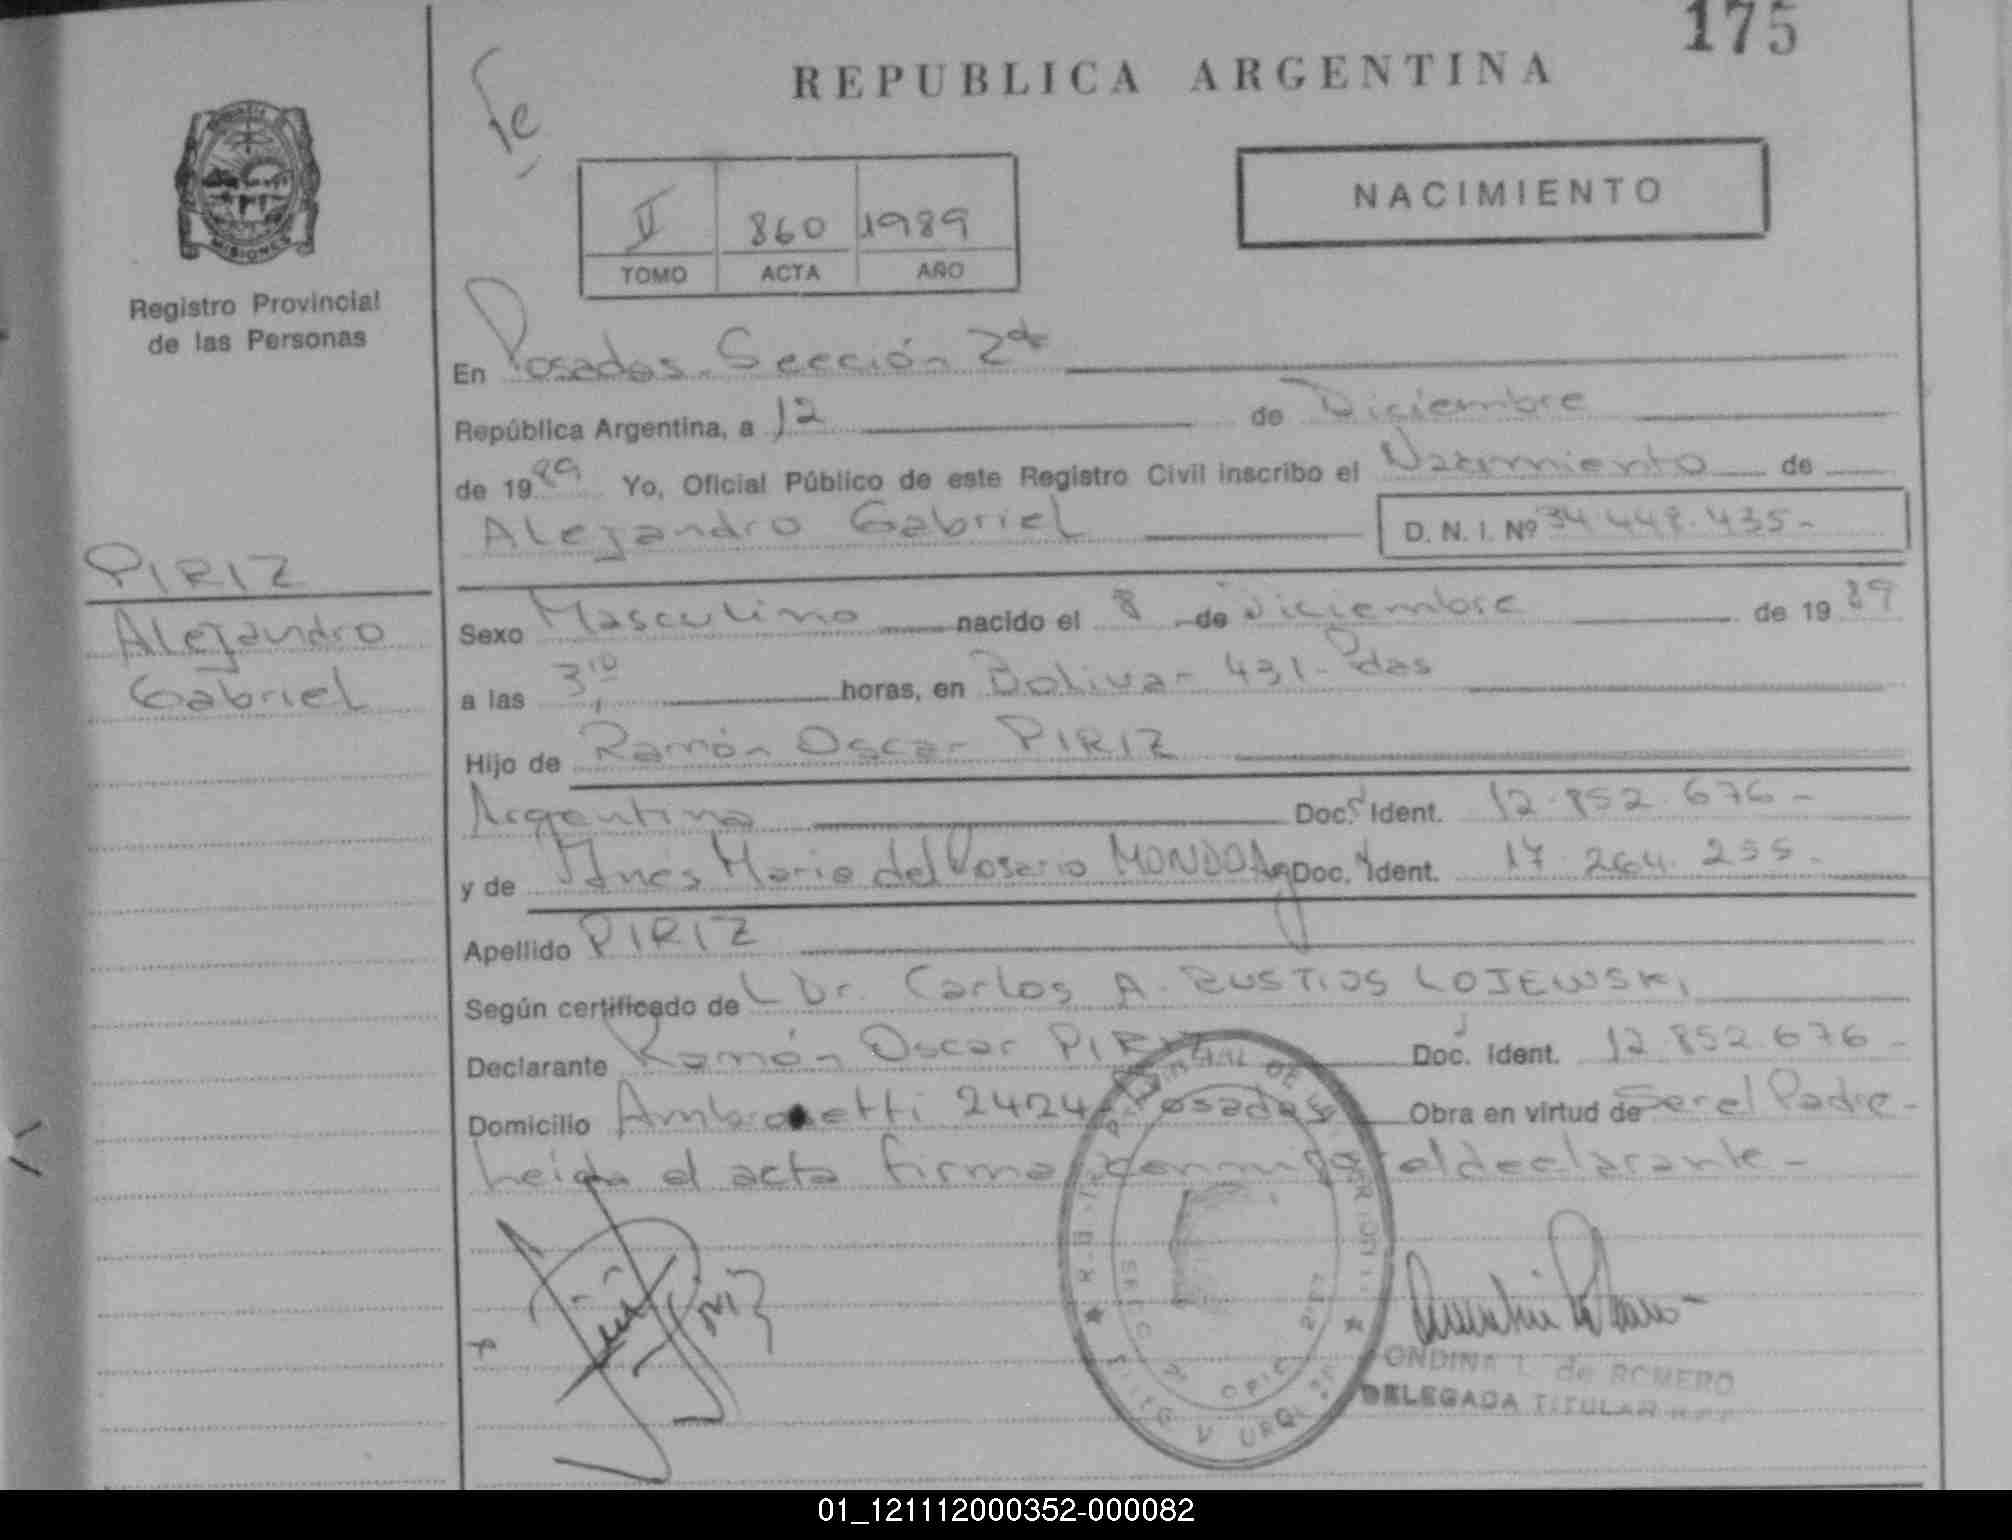 175
REPUBLICA ARGENTINA
Te
NACIMIENTO
II 860 1989
TOMO ACTA AÑO
MISIONES
Registro Provincial
de las Personas
En Posadas. Sección 2da
República Argentina, a 12 de Diciembre
de 1989 Yo, Oficial Público de este Registro Civil inscribo el Nacimiento de
Alejandro Gabriel D. N. I. Nº 34.448.435-
PIRIZ
Alejandro
Gabriel
Sexo Masculino nacido el 8 de Diciembre de 1989
a las 3,10 horas, en Bolivar 431- Pdas
Hijo de Ramón Oscar PIRIZ
Argentina Doc. Ident. 12.852.676-
y de Inés Maria del Rosario Doc. Ident. 17.264.255-
Apellido PIRIZ
Según certificado de Dr. Carlos A. LOJEWSKI
Declarante Ramón Oscar PIRIZ Doc. Ident. 12.852.676-
Domicilio Ambrosetti 2424- Posadas Obra en virtud de Ser el Padre-
Leida el acta firma conmigo el declarante-
ONDINA L. de ROMERO
DELEGADA TITULAR
01_121112000352-000082